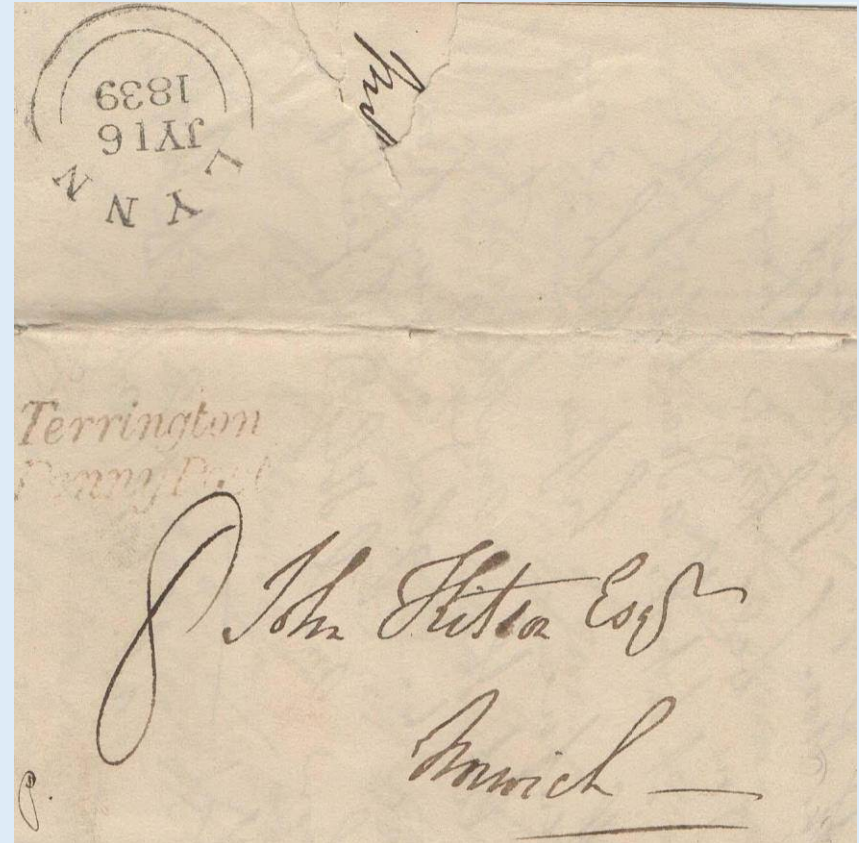 LYNN
JY16
1839
Terrington
Penny Post
8
John Kitson Esqr
Norwich